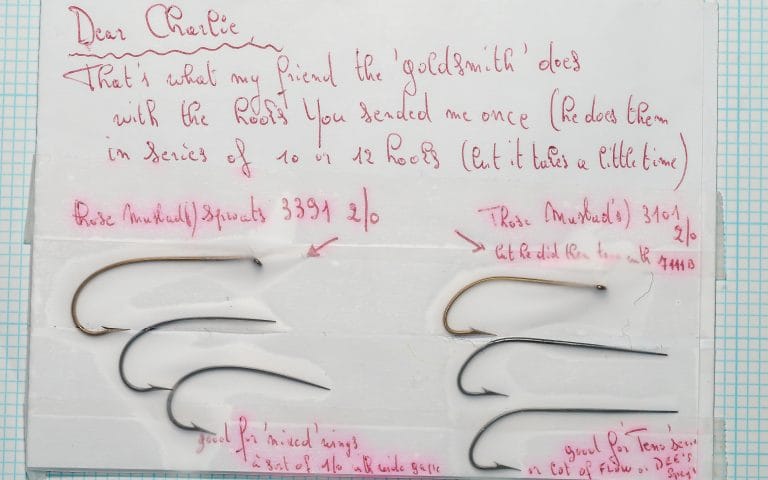 Dear Charlie,
That's what my friend the 'goldsmith' does
with the hooks you sended me once (he does them
in series of 10 or 12 hooks (but it takes a little time)
those Mustad(s) Sproats 3391 2/0
Those Mustad's) 3101
2/0
but he did them too with 7111B
good for 'mixed' wings
a sort of 1/0 with wide gape
good for
or Cot of Flow or DEE's